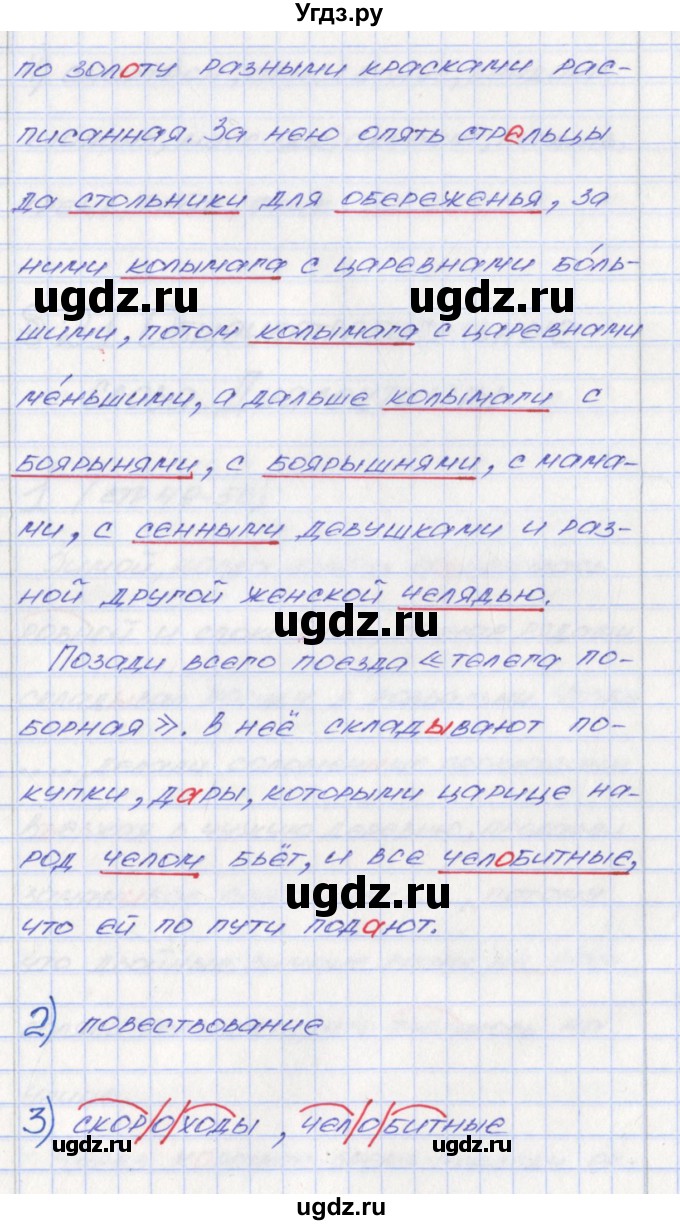 Угдз.ру
по золоту разными красками рас-
писанная. За нею опять стрельцы
да стольники для обереженья, за
ними колымага с царевнами бо́ль-
ugdz.ru ugdz.ru
шими, потом колымага с царевнами
ме́ньшими, а дальше колымаги с
боярынями, с боярышнями, с мама-
ми, с сенными девушками и раз-
ной другой женской челядью.
ugdz.ru
Позади всего поезда «телега по-
борная». В неё складывают по-
купки, дары, которыми царице на-
род челом бьёт, и все челобитные,
ugdz.ru
что ей по пути подают.
2) повествование
3) скор/о/ходы, чел/о/битные
ugdz.ru ugdz.ru
ugdz.ru